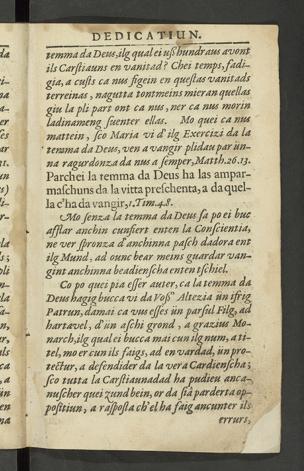 DEDICATIUN.
temma da Deus, ilg qual ei uß hundraus avont
ils Carstiauns en vanitad? Chei temps, fadi-
gia, a custs ca nus figein en questas vanitads
terreinas, nagutta tontmeins mieran quellas
giu la pli part ont ca nus, ner ca nus morin
ladinameng suenter ellas. Mo quei ca nus
mattein, sco Maria vi d'ilg Exercizi da la
temma da Deus, ven a vangir plidau par ün-
na ragurdonza da nus a semper, Matth. 26.13.
Parchei la temma da Deus ha las ampar-
maschuns da la vitta preschenta, a da quel-
la c'ha da vangir, 1. Tim. 4.8.
Mo senza la temma da Deus sa po ei buc
afflar anchin cunfiert enten la Conscientia,
ne ver spronza d'anchinna pasch dadora ent
ilg Mund, ad ounc bear meins guardar van-
gint anchinna beadienscha enten tschiel.
Co po quei pia esser auter, ca la temma da
Deus hagig bucca vi da Voßa Altezia ün ifrig
Patrun, damai ca vus esses ün parsul Filg, ad
hartavel, d'ün aschi grond, a grazius Mo-
narch, ilg qual ei bucca mai cun ilg num, a ti-
tel, mo er cun ils faigs, ad en vardad, ün pro-
tectur, a defendider da la vera Cardienscha;
sco tutta la Carstiaunadad ha pudieu anca-
nuscher quei zund bein, or da siâ parderta op-
positiun, a rasposta ch'el ha faig ancunter ils
errurs,